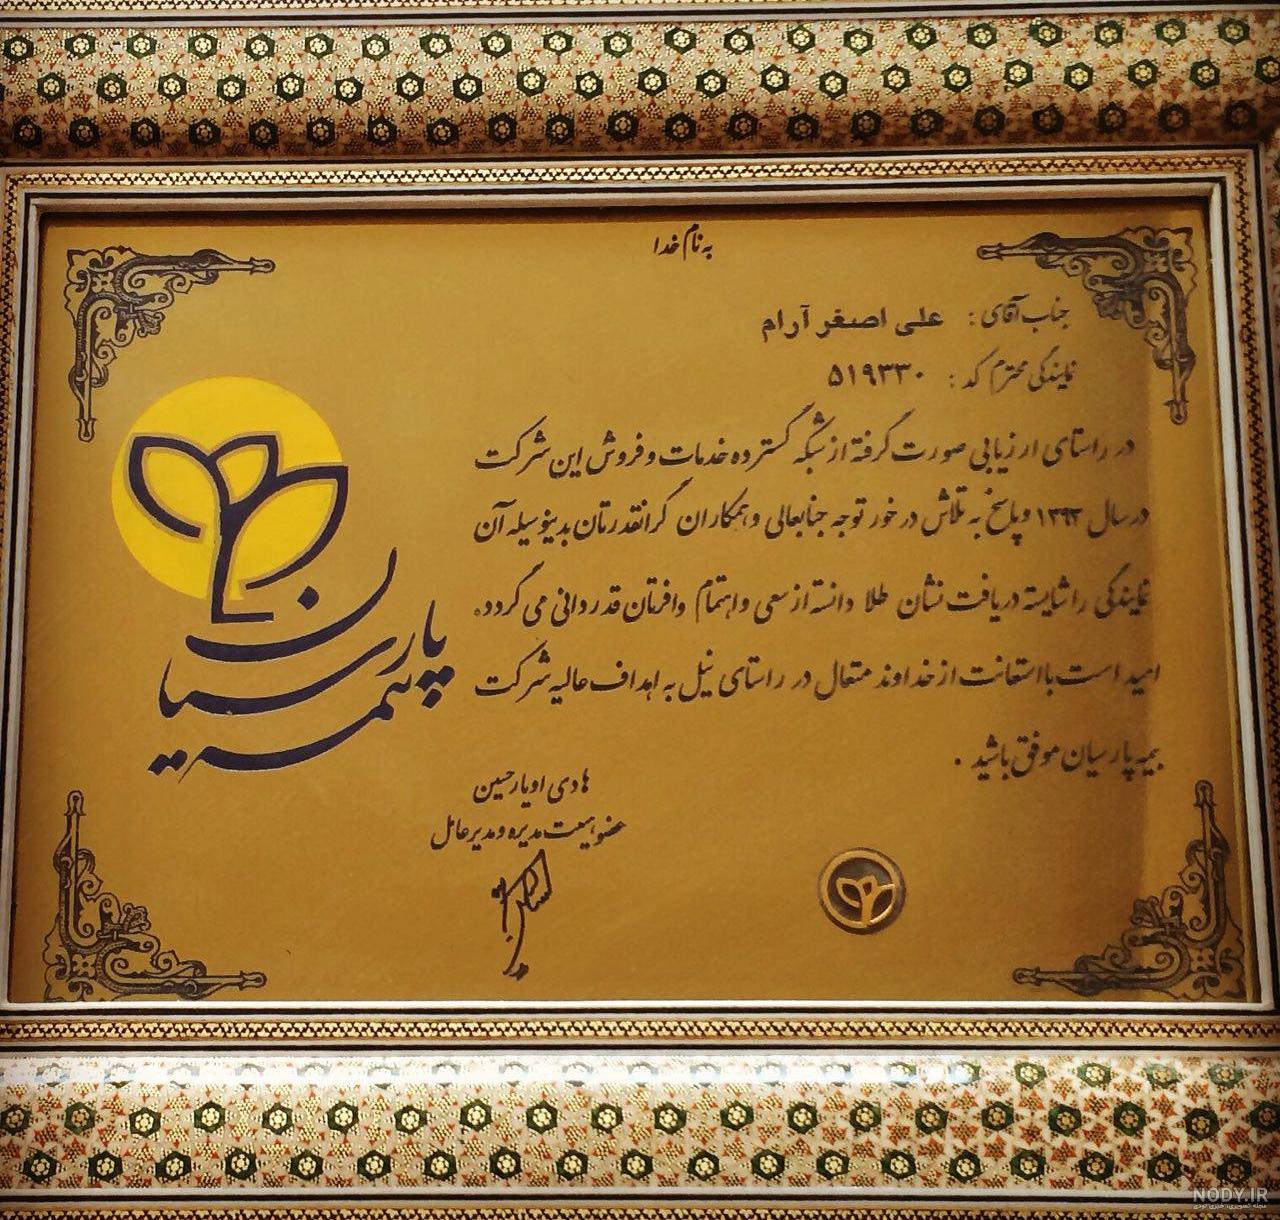 به نام خدا
جناب آقای : علی اصغر آرام
نمایندگی محترم کد : ۵۱۹۳۳۰
در راستای ارزیابی صورت گرفته از شبکه گسترده خدمات و فروش این شرکت
در سال ۱۳۹۳ و پاسخ به تلاش در خور توجه جنابعالی و همکاران گرانقدرتان بدینوسیله آن
نمایندگی را شایسته دریافت نشان طلا دانسته از سعی و اهتمام وافرتان قدردانی می گردد.
امید است با استعانت از خداوند متعال در راستای نیل به اهداف عالیه شرکت
بیمه پارسیان موفق باشید .
بیمه پارسیان
هادی اویارحسین
عضو هیئت مدیره و مدیرعامل
NODY.IR
مجله تصویری، خبری نودی